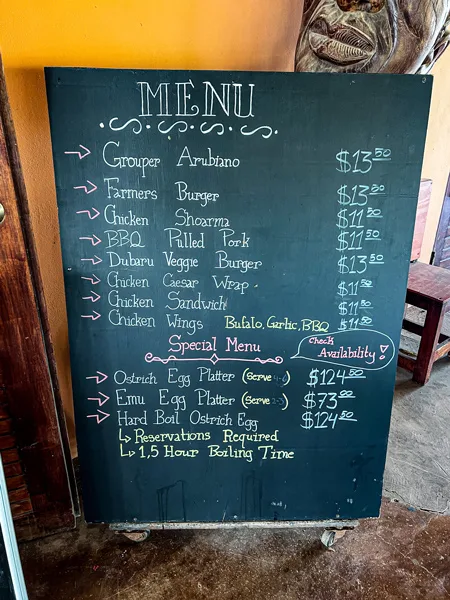 MENU
Grouper Arubiano $13.50
Farmers Burger $13.50
Chicken Shoarma $11.50
BBQ Pulled Pork $11.50
Dubaru Veggie Burger $13.50
Chicken Caesar Wrap $11.50
Chicken Sandwich $11.50
Chicken Wings Bufalo, Garlic, BBQ $11.50
Special Menu
Check Availability!
Ostrich Egg Platter (Serve 4-6) $124.50
Emu Egg Platter (Serve 2-3) $73.00
Hard Boil Ostrich Egg $124.50
Reservations Required
1,5 Hour Boiling Time